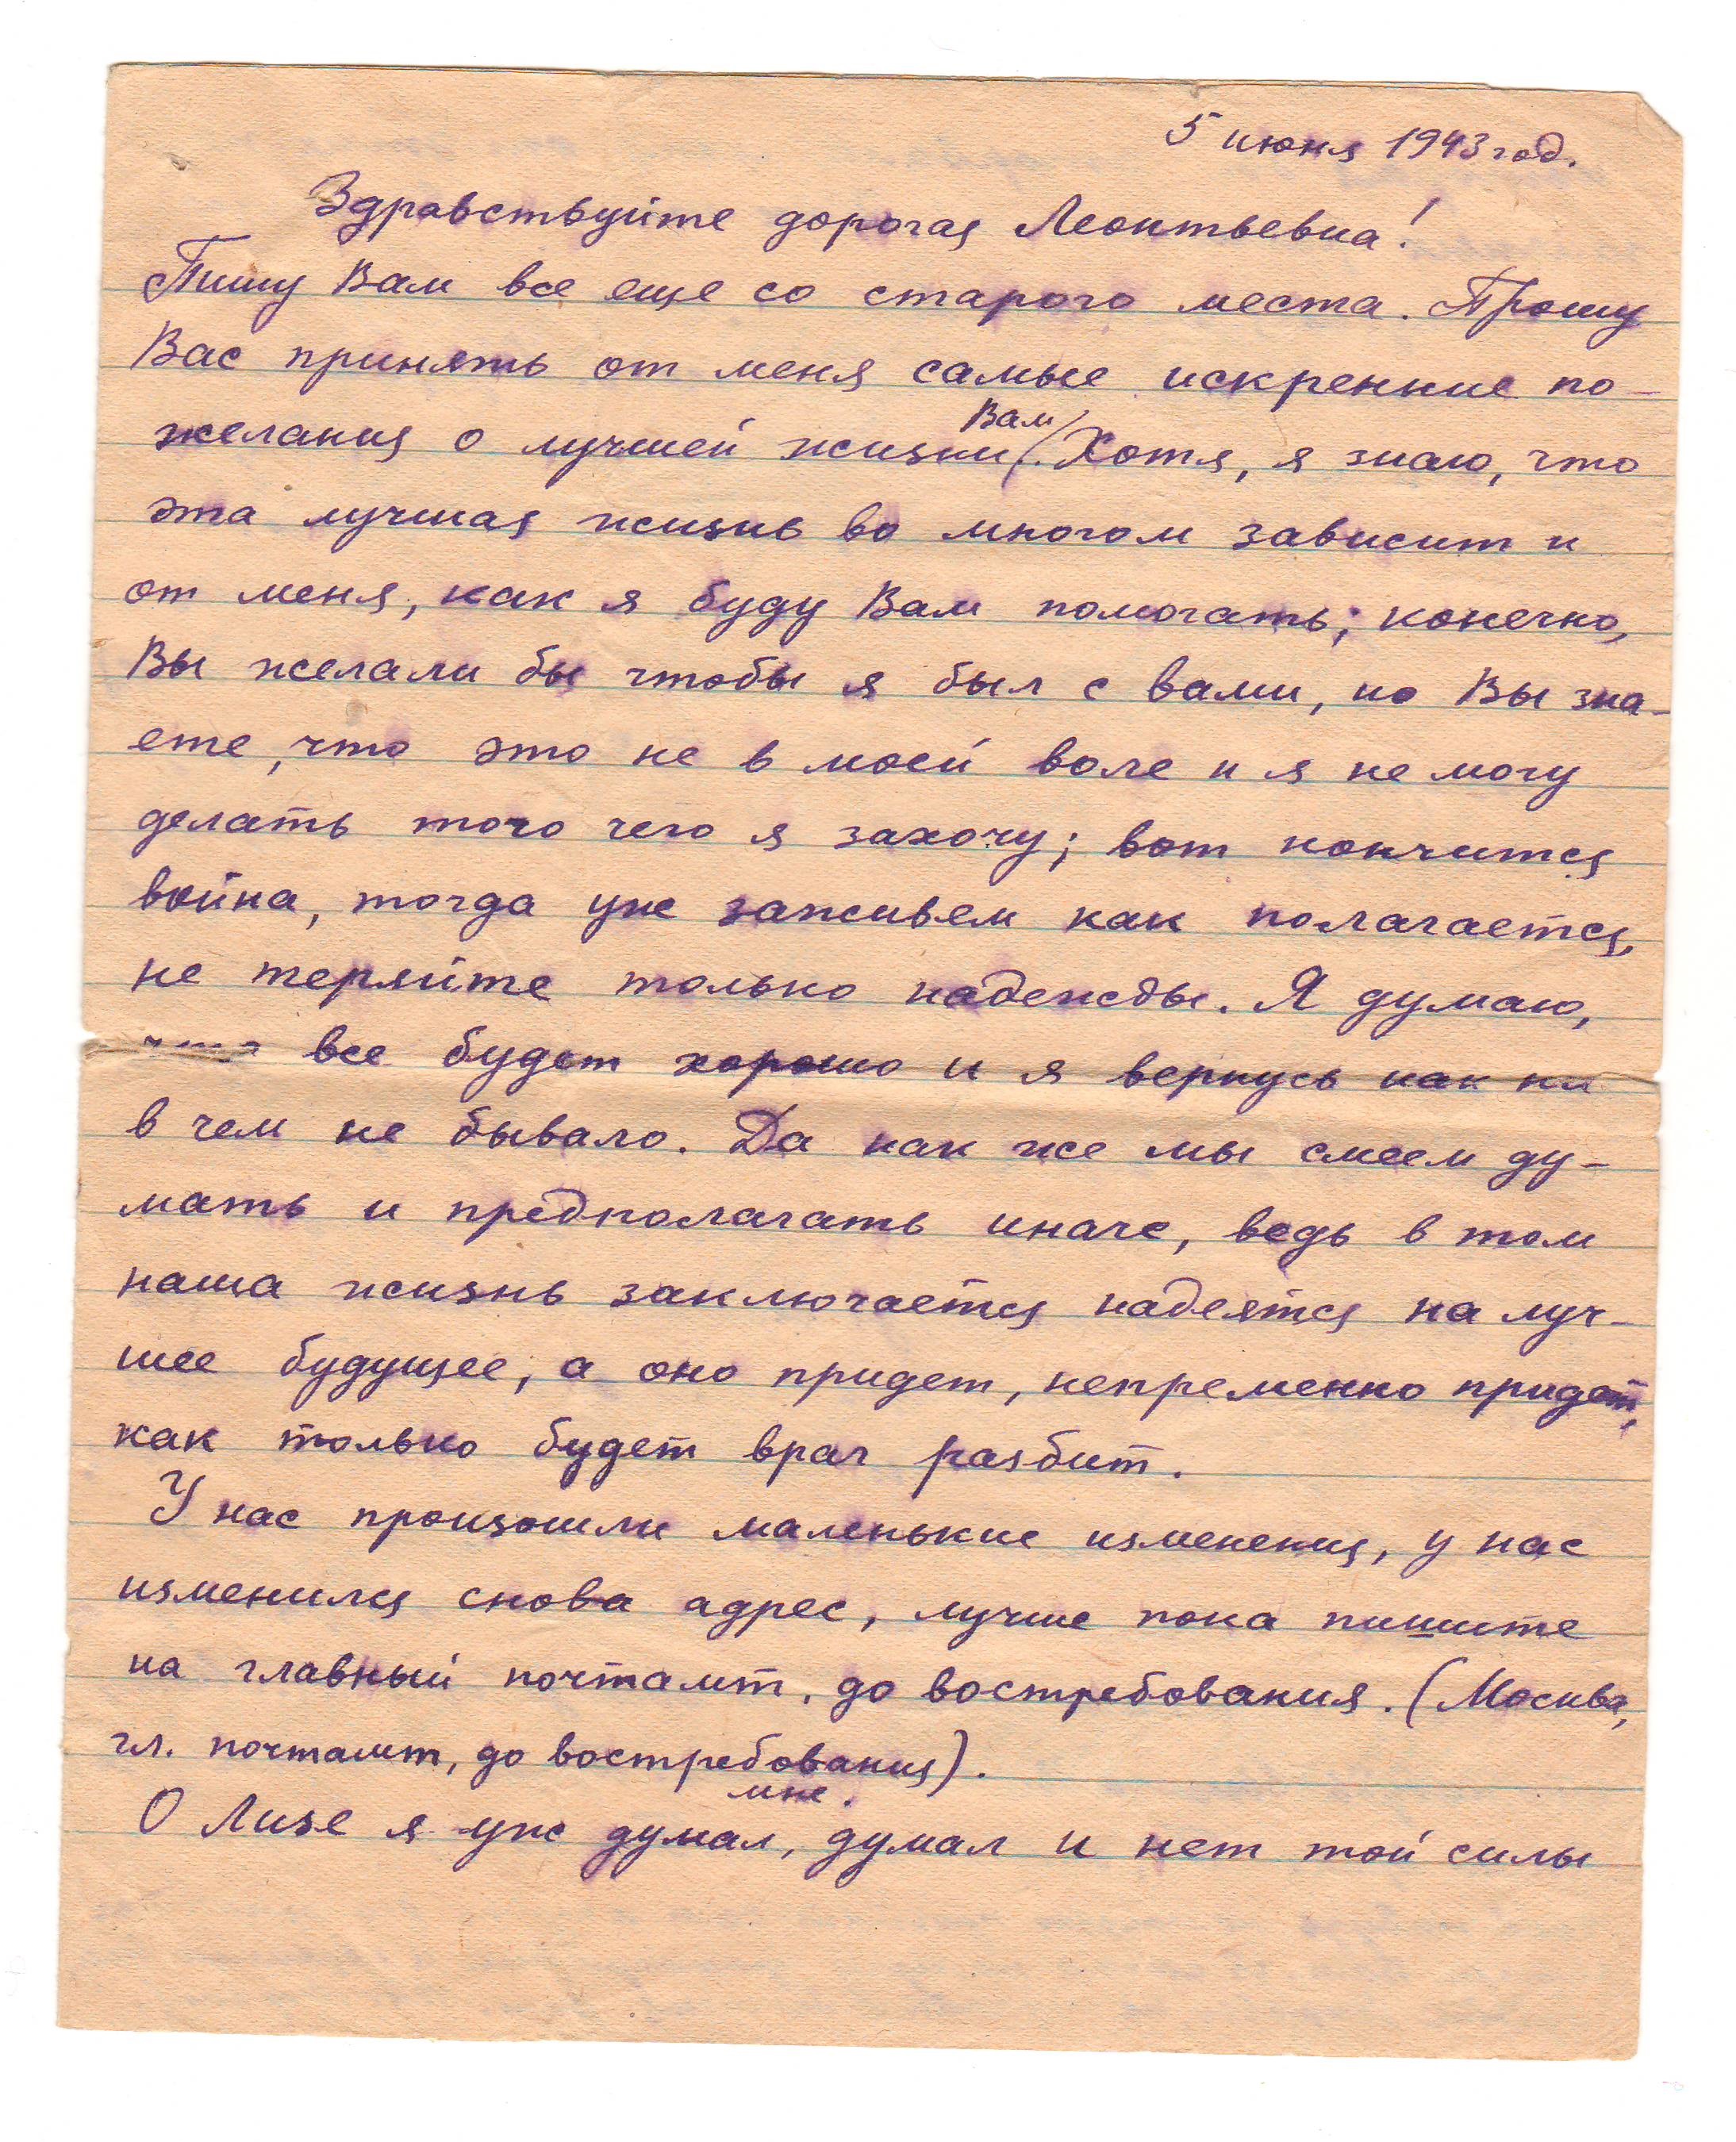 5 июня 1943 год.
Здравствуйте дорогая Леонтьевна!
Пишу Вам все еще со старого места. Прошу
Вас принять от меня самые искренние по-
желания о лучшей жизни Вам. Хотя, я знаю, что
эта лучшая жизнь во многом зависит и
от меня, как я буду Вам помогать; конечно,
Вы желали бы чтобы я был с вами, но Вы зна-
ете, что это не в моей воле и я не могу
делать того чего я захочу; вот кончится
война, тогда уже заживем как полагается,
не теряйте только надежды. Я думаю,
что все будет хорошо и я вернусь как ни
в чем не бывало. Да как же мы смеем ду-
мать и предполагать иначе, ведь в том
наша жизнь заключается надеятся на луч-
шее будущее, а оно придет, непременно придет,
как только будет враг разбит.
У нас произошли маленькие изменения, у нас
изменился снова адрес, лучше пока пишите
на главный почтамт, до востребования. (Москва,
гл. почтамт, до востребования).
мне.
О Лизе я уже думал, думал и нет той силы